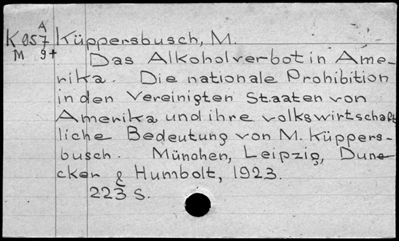 A
K 057 Küppersbusch, M.
M 9+ Das Alkoholverbot in Ame-
rika. Die nationale Prohibition
in den Vereinigten Staaten von
Amerika und ihre volkswirtschaft
liche Bedeutung von M. Küppers-
busch. München, Leipzig, Dun-
cker & Humbolt, 1923.
223 S.